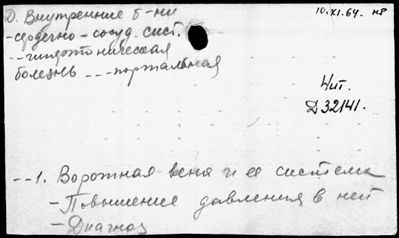 Д. Внутренние б-ни
10.XI.64. нв
-сердечно-сосуд. сист.
--гипертоническая
болезнь---портальная
Чит.
Д32141.
--1. Воротная вена и ее система
-Повышение давления в ней
-Диагноз